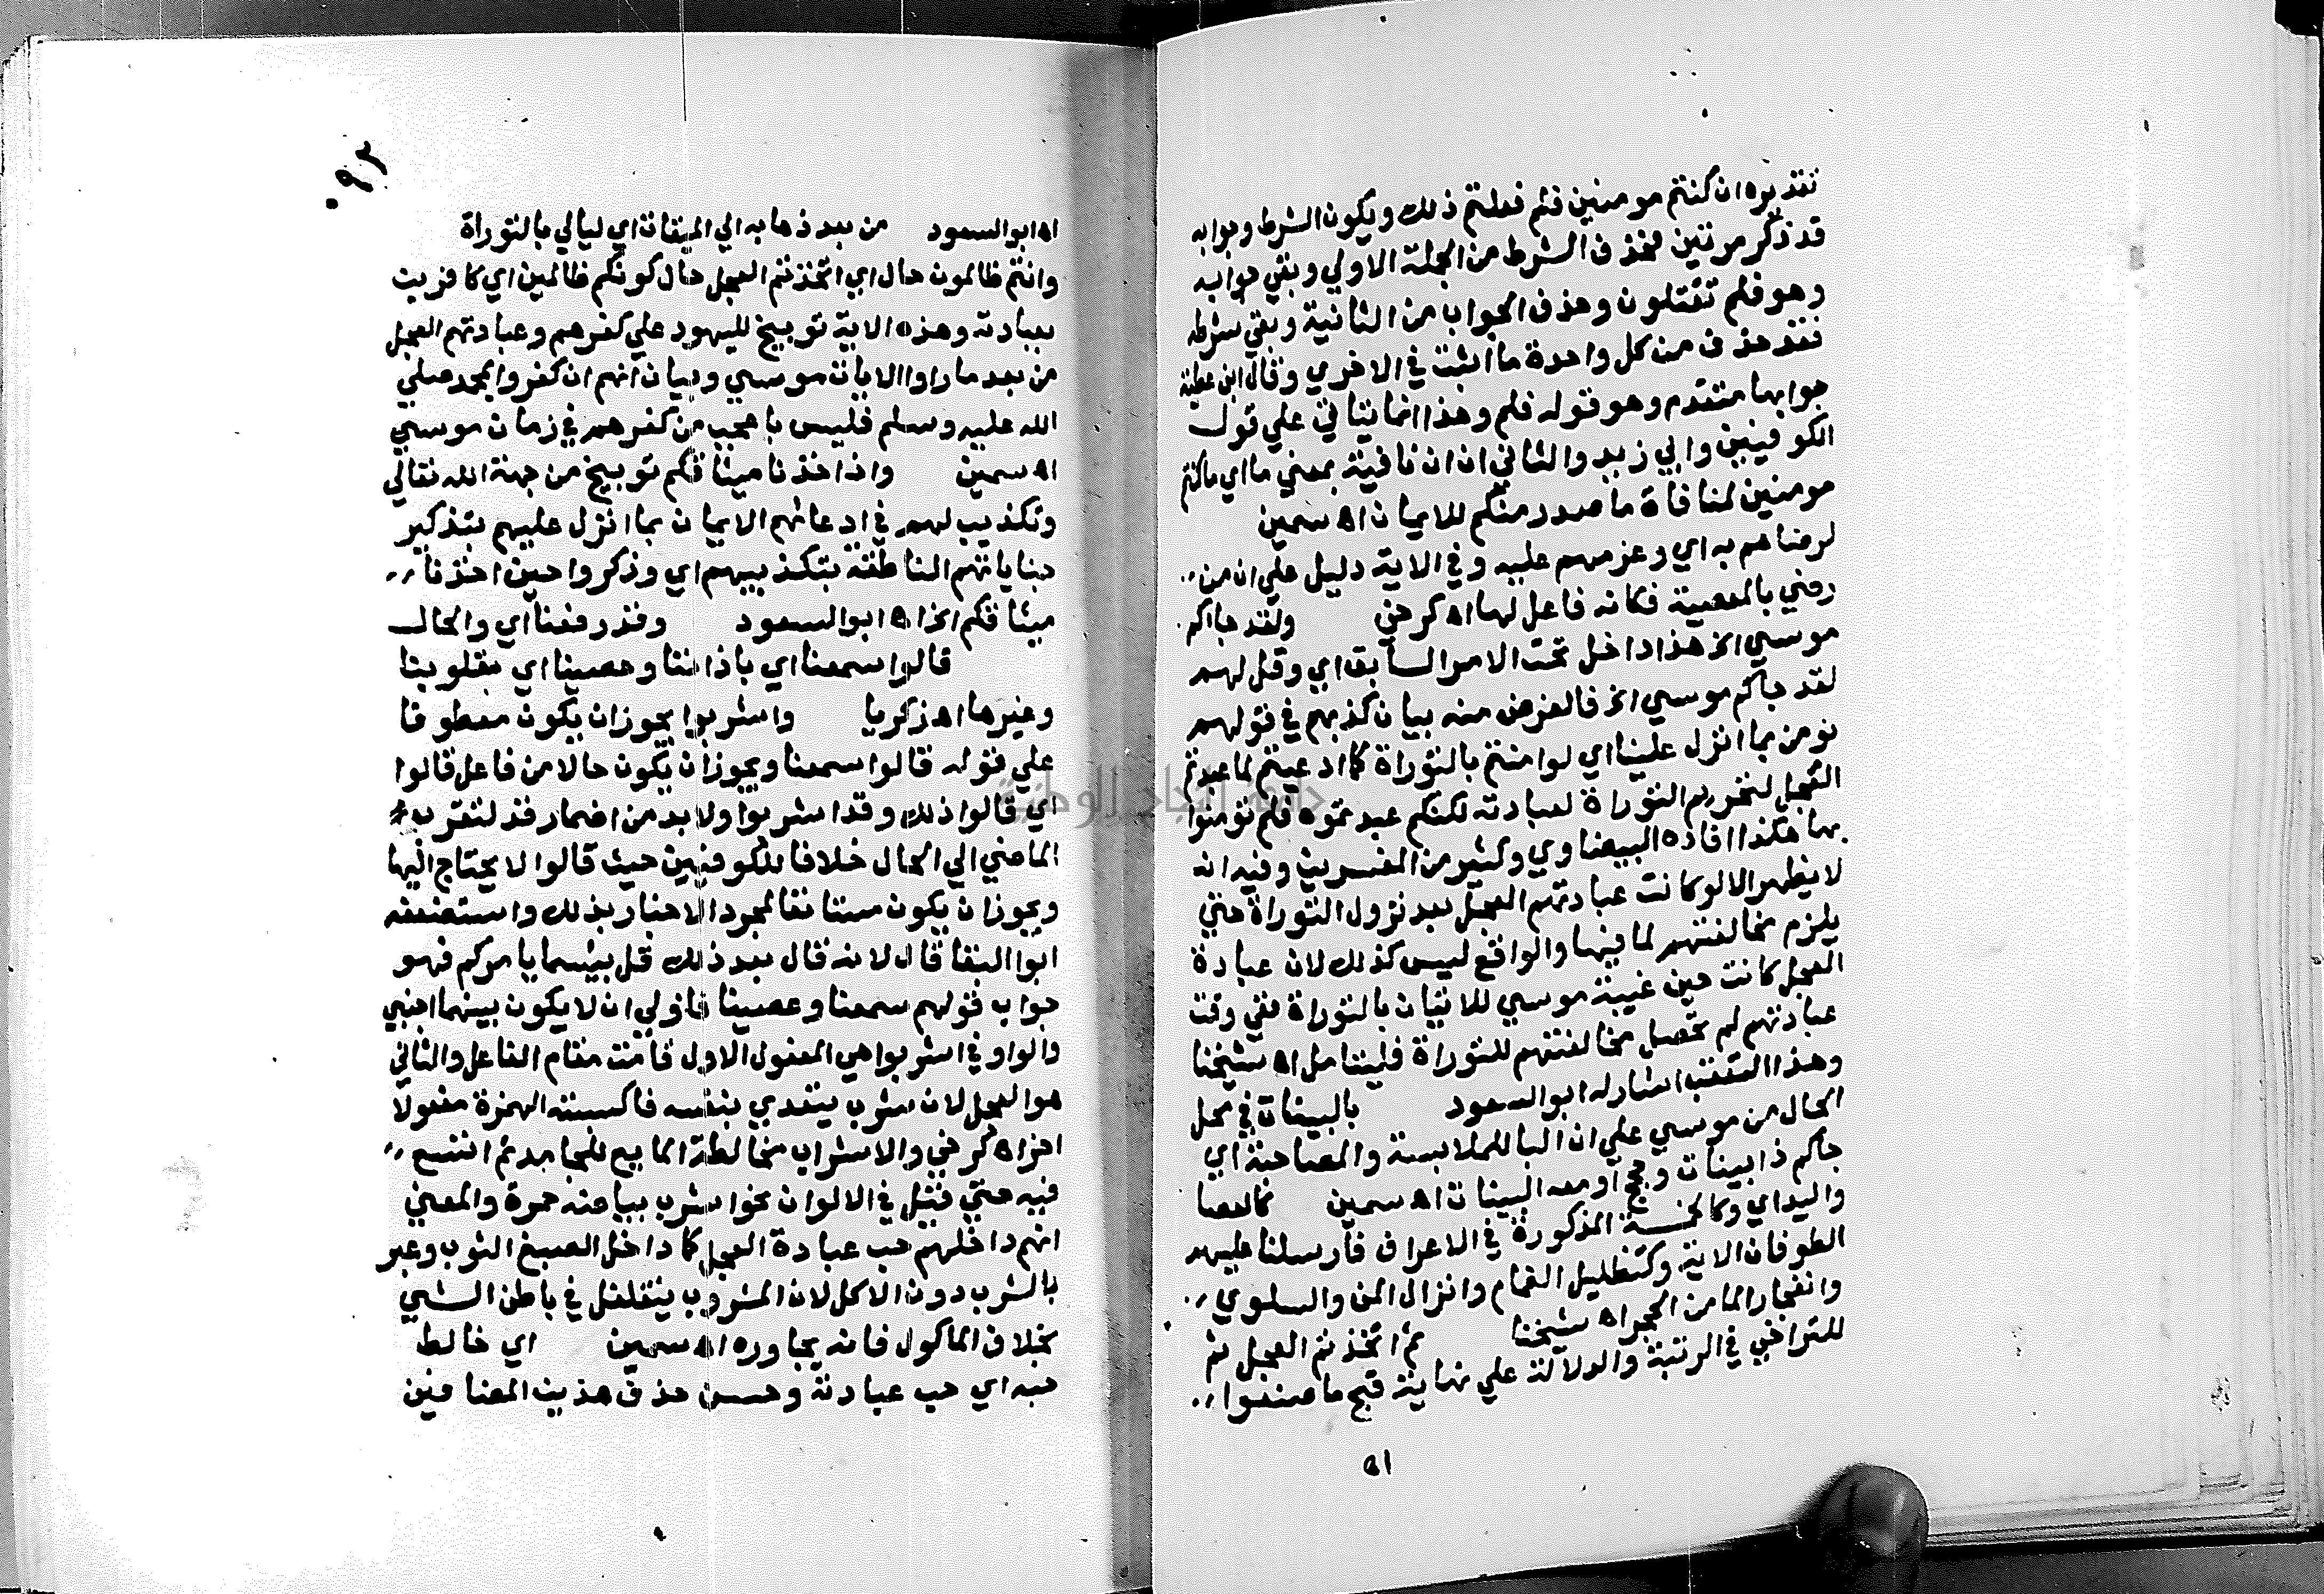 تقديره ان كنتم مومنين فلم فعلتم ذلك ويكون الشرط وجوابه
قد ذكر مرتين فحذف الشرط من الجملة الاولي وبقي جوابه
وهو فلم تقتلون وحذف الجواب من الثانية وبقي شرطه
فقد حذف من كل واحدة ما اثبت في الاخري وقال ابن عطية
جوابها متقدم وهو قوله فلم وهذا انما يتاتي علي قول
الكوفيين وابي زيد والثاني ان ان نافية بمعني ما اي ما كنتم
مومنين لمنافاة ما صدر منكم للايمان اه سمين
لرضاهم به اي وعزمهم عليه وفي الاية دليل علي ان من
رضي بالمعصية فكانه فاعل لها اه كرخي ولقد جاكم
موسي الخ هذا داخل تحت الامر السابق اي وقل لهم
لقد جاكم موسي الخ فالغرض منه بيان كذبهم في قولهم
نومن بما انزل علينا اي لو امنتم بالتوراة كما ادعيتم لما عبدتم
العجل لتحريم التوراة لعبادته لكنكم عبدتموه فلم تومنوا
بها هكذا افاده البيضاوي وكثير من المفسرين وفيه انه
لا يظهر الا لو كانت عبادتهم العجل بعد نزول التوراة حتي
يلزم مخالفتهم لما فيها والواقع ليس كذلك لان عبادة
العجل كانت حين غيبة موسي للاتيان بالتوراة ففي وقت
عبادتهم لم تحصل مخالفتهم للتوراة فليتامل اه شيخنا
وهذا التعقب اشار له ابو السعود بالبينات في محل
الحال من موسي علي ان البا للملابسة والمصاحبة اي
جاكم ذا بينات وحجج او معه البينات اه سمين كالعصا
واليد اي وكالخمسة المذكورة في الاعراف فارسلنا عليهم
الطوفان الاية وكتظليل الغمام وانزال المن والسلوي
وانفجار الما من الحجر اه شيخنا ثم اتخذتم العجل ثم
للتراخي في الرتبة والدلالة علي نهاية قبح ما صنعوا
اه
٩٣
اه ابو السعود من بعد ذهابه الي الميقات اي ليالي بالتوراة
وانتم ظالمون حال اي اتخذتم العجل حال كونكم ظالمين اي كافرين
بعبادته وهذه الاية توبيخ لليهود علي كفرهم وعبادتهم العجل
من بعد ما راوا الايات موسي وبيان انهم ان كفروا بمحمد صلي
الله عليه وسلم فليس باعجب من كفرهم في زمان موسي
اه سمين واذ اخذنا ميثاقكم توبيخ من جهة الله تعالي
وتكذيب لهم في ادعائهم الايمان بما انزل عليهم بتذكير
جناياتهم الناطقة بتكذيبهم اي وذكروا حين اخذنا
ميثاقكم الخ اه ابو السعود وقد رفعنا اي والحال
قالوا سمعنا اي باذاننا وعصينا اي بقلوبنا
وغيرها اه زكريا واشربوا يجوز ان يكون معطوفا
علي قوله قالوا سمعنا ويجوز ان يكون حالا من فاعل قالوا
اي قالوا ذلك وقد اشربوا ولا بد من اضمار قد لتقرب
الماضي الي الحال خلافا للكوفيين حيث قالوا لا يحتاج اليها
ويجوز ان يكون مستانفا لمجرد الاخبار بذلك واستضعفه
ابو البقا قال لانه قال بعد ذلك قل بيسما يامركم فهو
جواب قولهم سمعنا وعصينا فاولي ان لا يكون بينهما اجنبي
والواو في اشربوا هي المفعول الاول قامت مقام الفاعل والثاني
هو العجل لان شرب يتعدي بنفسه فاكسبته الهمزة مفعولا
اخر اه كرخي والاشراب مخالطة المايع للجامد ثم اتسع
فيه حتي قيل في الالوان نحو اشرب بياضه حمرة والمعني
انهم داخلهم حب عبادة العجل كما داخل الصبغ الثوب وعبر
بالشرب دون الاكل لان المشروب يتغلغل في باطن الشي
بخلاف الماكول فانه يجاوره اه سمين اي خالط
حبه اي حب عبادته وحسن حذف هذين المضافين
جامعة النجاح الوطنية